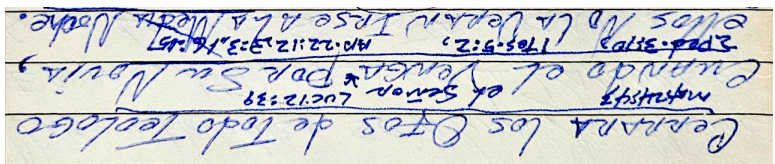 Cerrara los Ojos de Todo Teologo
Mat.24:43 el Señor Luc.12:39
Cuando el Venga * Por Su Novia,
2Ped.3:10, 1Tes.5:2, Ap.22:12,3:3,16:15
ellos No La Veran Irse A La Media Noche.